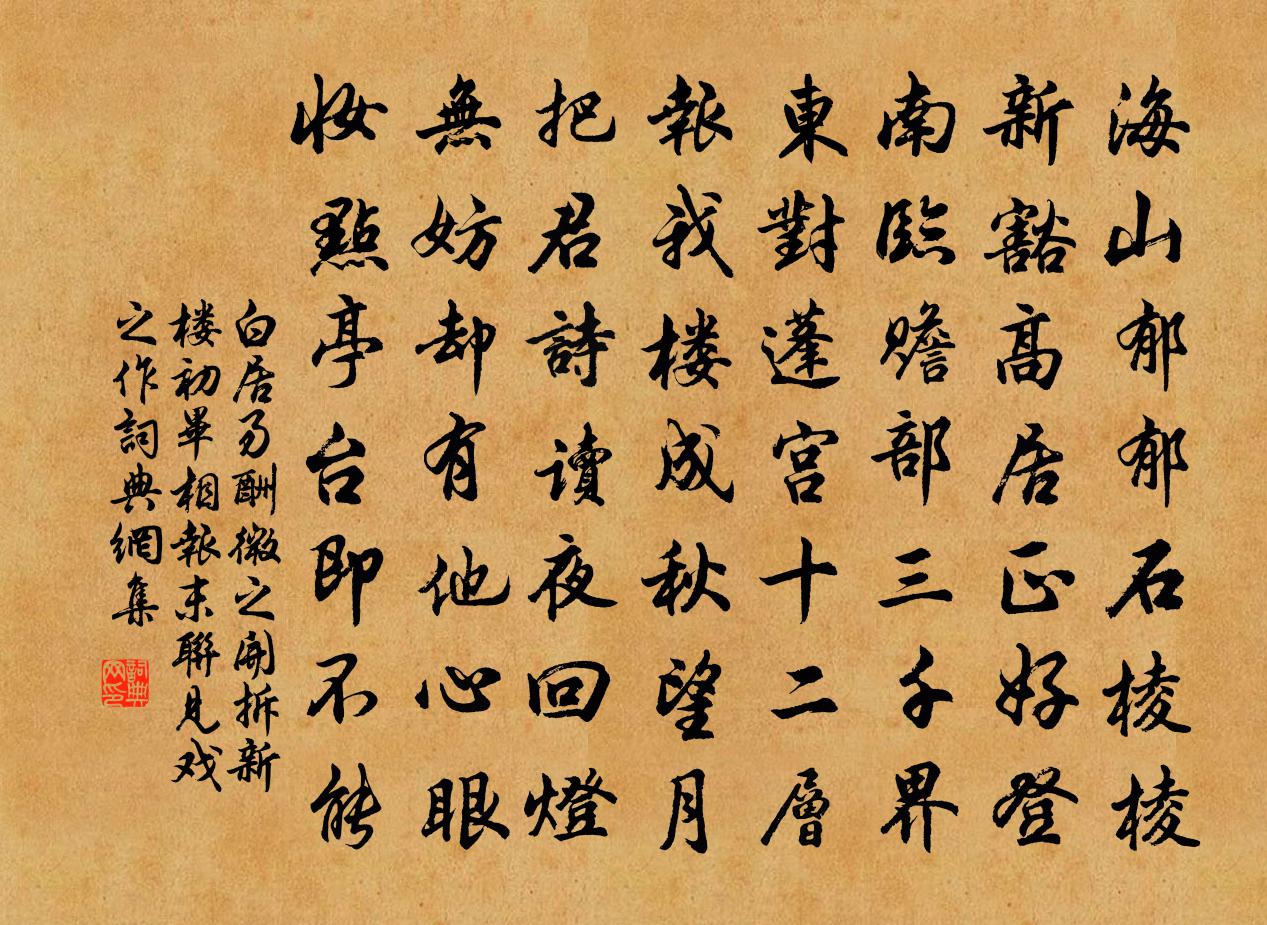 海山郁郁石棱棱
新豁高居正好登
南臨贍部三千界
東對蓬宮十二層
報我楼成秋望月
把君詩讀夜回燈
無妨却有他心眼
妝點亭台即不能
白居易酬微之開拆新
楼初畢相報末聯見戏
之作詞典網集
詞典
网印